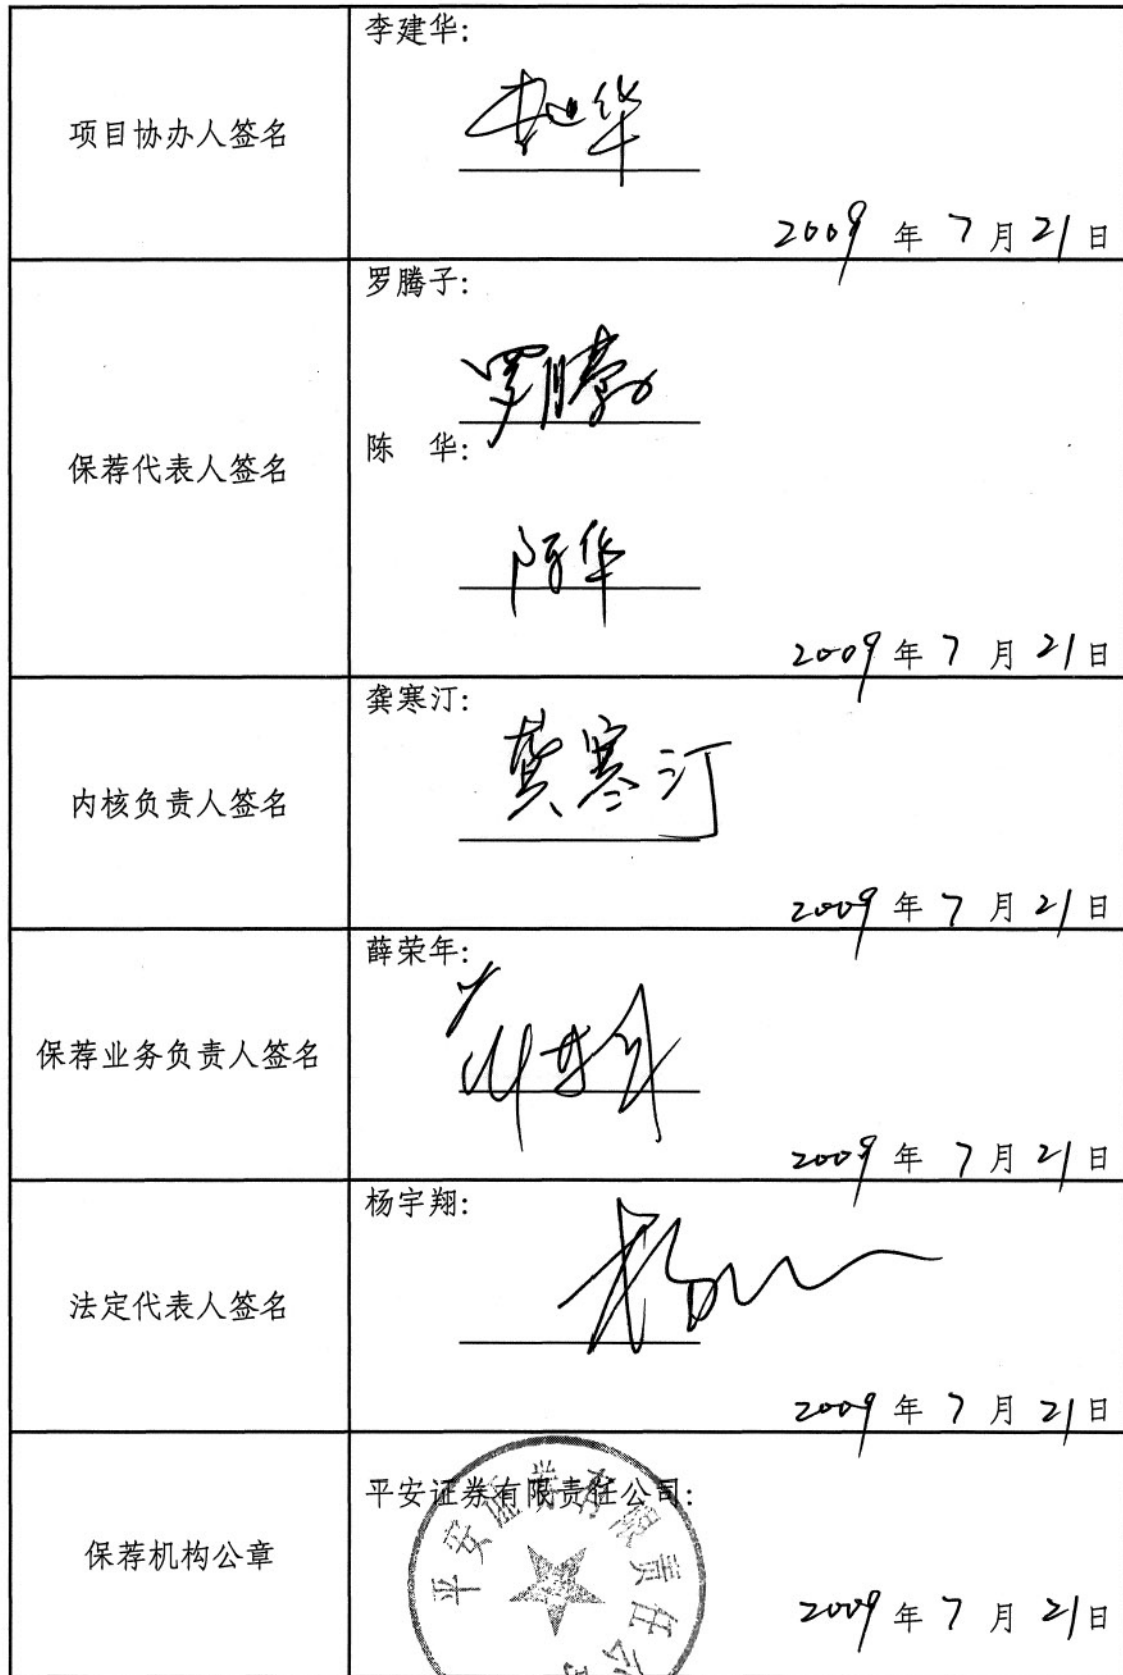 项目协办人签名
李建华:
李建华
2009 年 7 月 21 日
保荐代表人签名
罗腾子:
罗腾子
陈 华:
陈华
2009 年 7 月 21 日
内核负责人签名
龚寒汀:
龚寒汀
2009 年 7 月 21 日
保荐业务负责人签名
薛荣年:
薛荣年
2009 年 7 月 21 日
法定代表人签名
杨宇翔:
2009 年 7 月 21 日
保荐机构公章
平安证券有限责任公司:
平安证券有限责任公司
2009 年 7 月 21 日